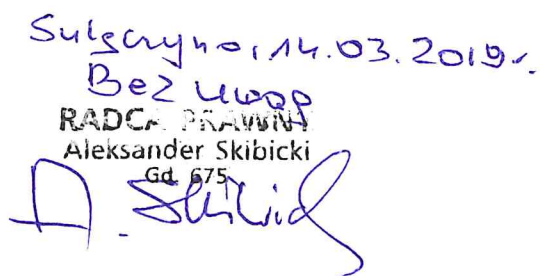 Sulęczyno, 14.03.2019r.
Bez uwag
RADCA PRAWNY
Aleksander Skibicki
Gd. 675
A. Skibicki